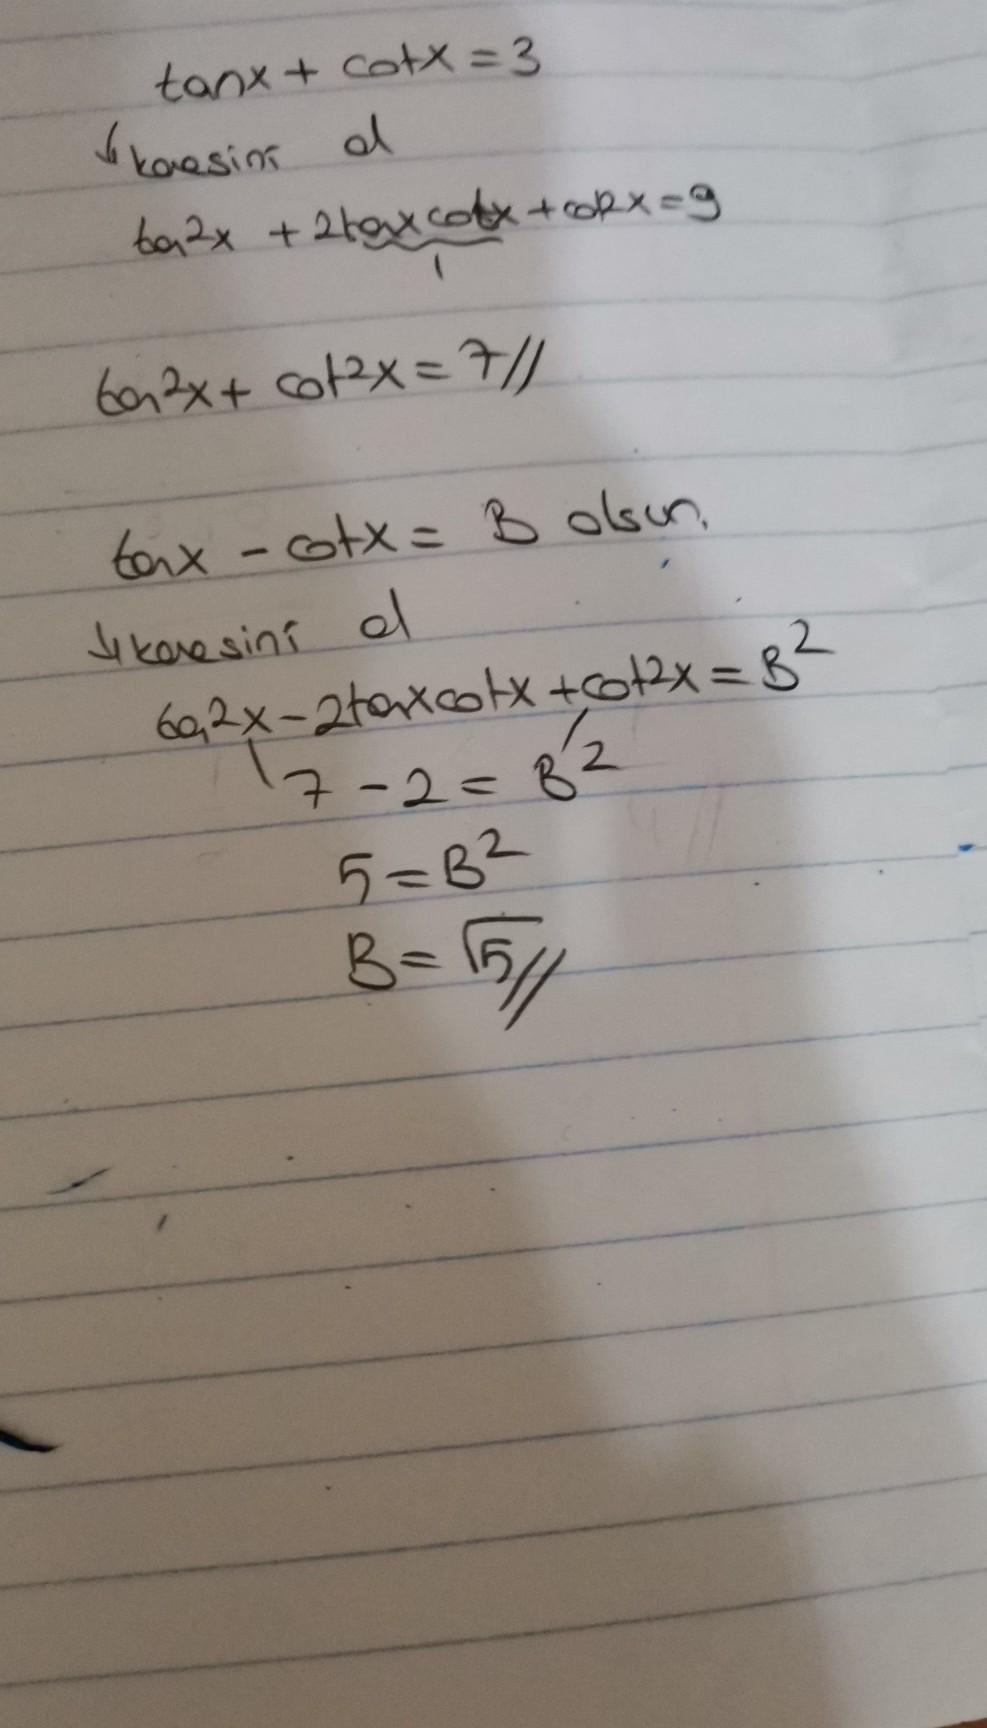 tanx + cotx = 3
↓ karesini al
tan²x + 2tanxcotx + cot²x = 9
1
tan²x + cot²x = 7//
tanx - cotx = B olsun.
↓ karesini al
tan²x - 2tanxcotx + cot²x = B²
7 - 2 = B²
5 = B²
B = √5//